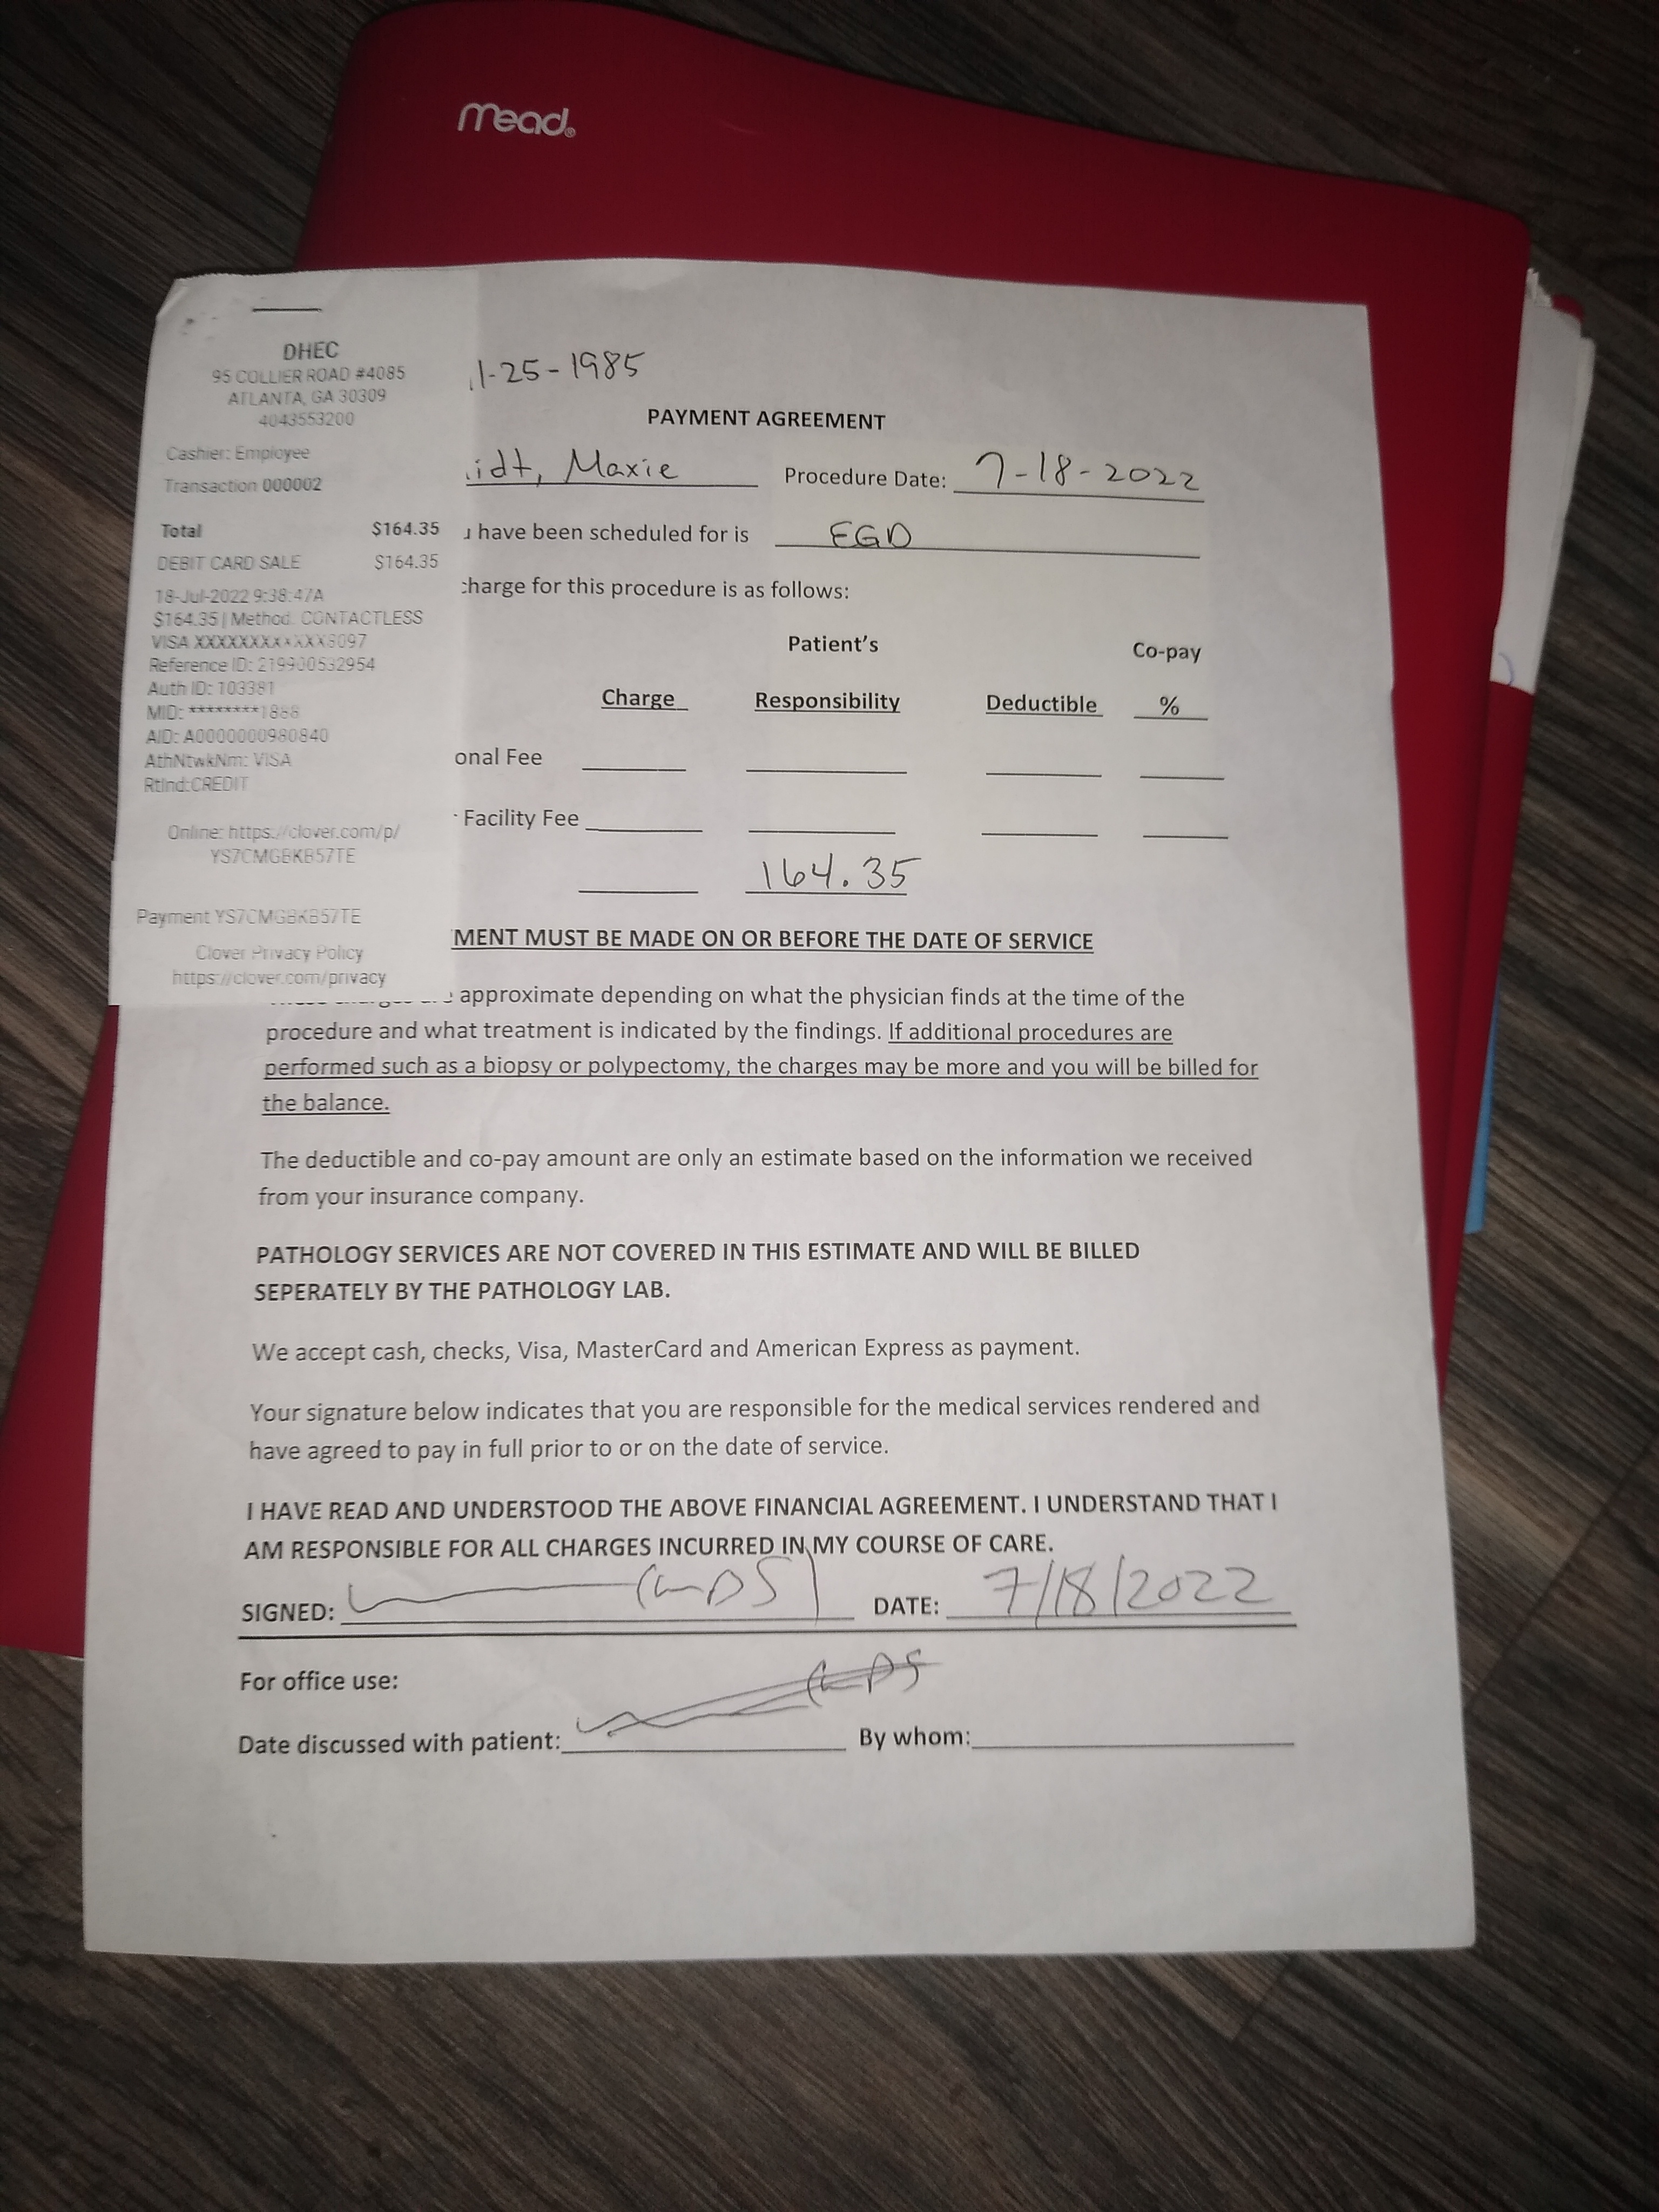 mead
DHEC
95 COLLIER ROAD #4085
ATLANTA, GA 30309
4043553200
Cashier: Employee
Transaction 000002
Total $164.35
DEBIT CARD SALE $164.35
18-Jul-2022 9:38:47A
$164.35 | Method: CONTACTLESS
VISA XXXXXXXXXXXX8097
Reference ID: 219900532954
Auth ID: 103381
MID: ********1888
AID: A0000000980840
AthNtwkNm: VISA
RtInd:CREDIT
Online: https://clover.com/p/
YS7CMGBKB57TE
Payment YS7CMGBKB57TE
Clover Privacy Policy
https://clover.com/privacy
1-25-1985
PAYMENT AGREEMENT
idt, Maxie Procedure Date: 7-18-2022
have been scheduled for is EGD
charge for this procedure is as follows:
Patient's Co-pay
Charge Responsibility Deductible %
onal Fee
Facility Fee
164.35
MENT MUST BE MADE ON OR BEFORE THE DATE OF SERVICE
approximate depending on what the physician finds at the time of the
procedure and what treatment is indicated by the findings. If additional procedures are
performed such as a biopsy or polypectomy, the charges may be more and you will be billed for
the balance.
The deductible and co-pay amount are only an estimate based on the information we received
from your insurance company.
PATHOLOGY SERVICES ARE NOT COVERED IN THIS ESTIMATE AND WILL BE BILLED
SEPERATELY BY THE PATHOLOGY LAB.
We accept cash, checks, Visa, MasterCard and American Express as payment.
Your signature below indicates that you are responsible for the medical services rendered and
have agreed to pay in full prior to or on the date of service.
I HAVE READ AND UNDERSTOOD THE ABOVE FINANCIAL AGREEMENT. I UNDERSTAND THAT I
AM RESPONSIBLE FOR ALL CHARGES INCURRED IN MY COURSE OF CARE.
SIGNED: DATE: 7/18/2022
For office use:
Date discussed with patient: By whom: